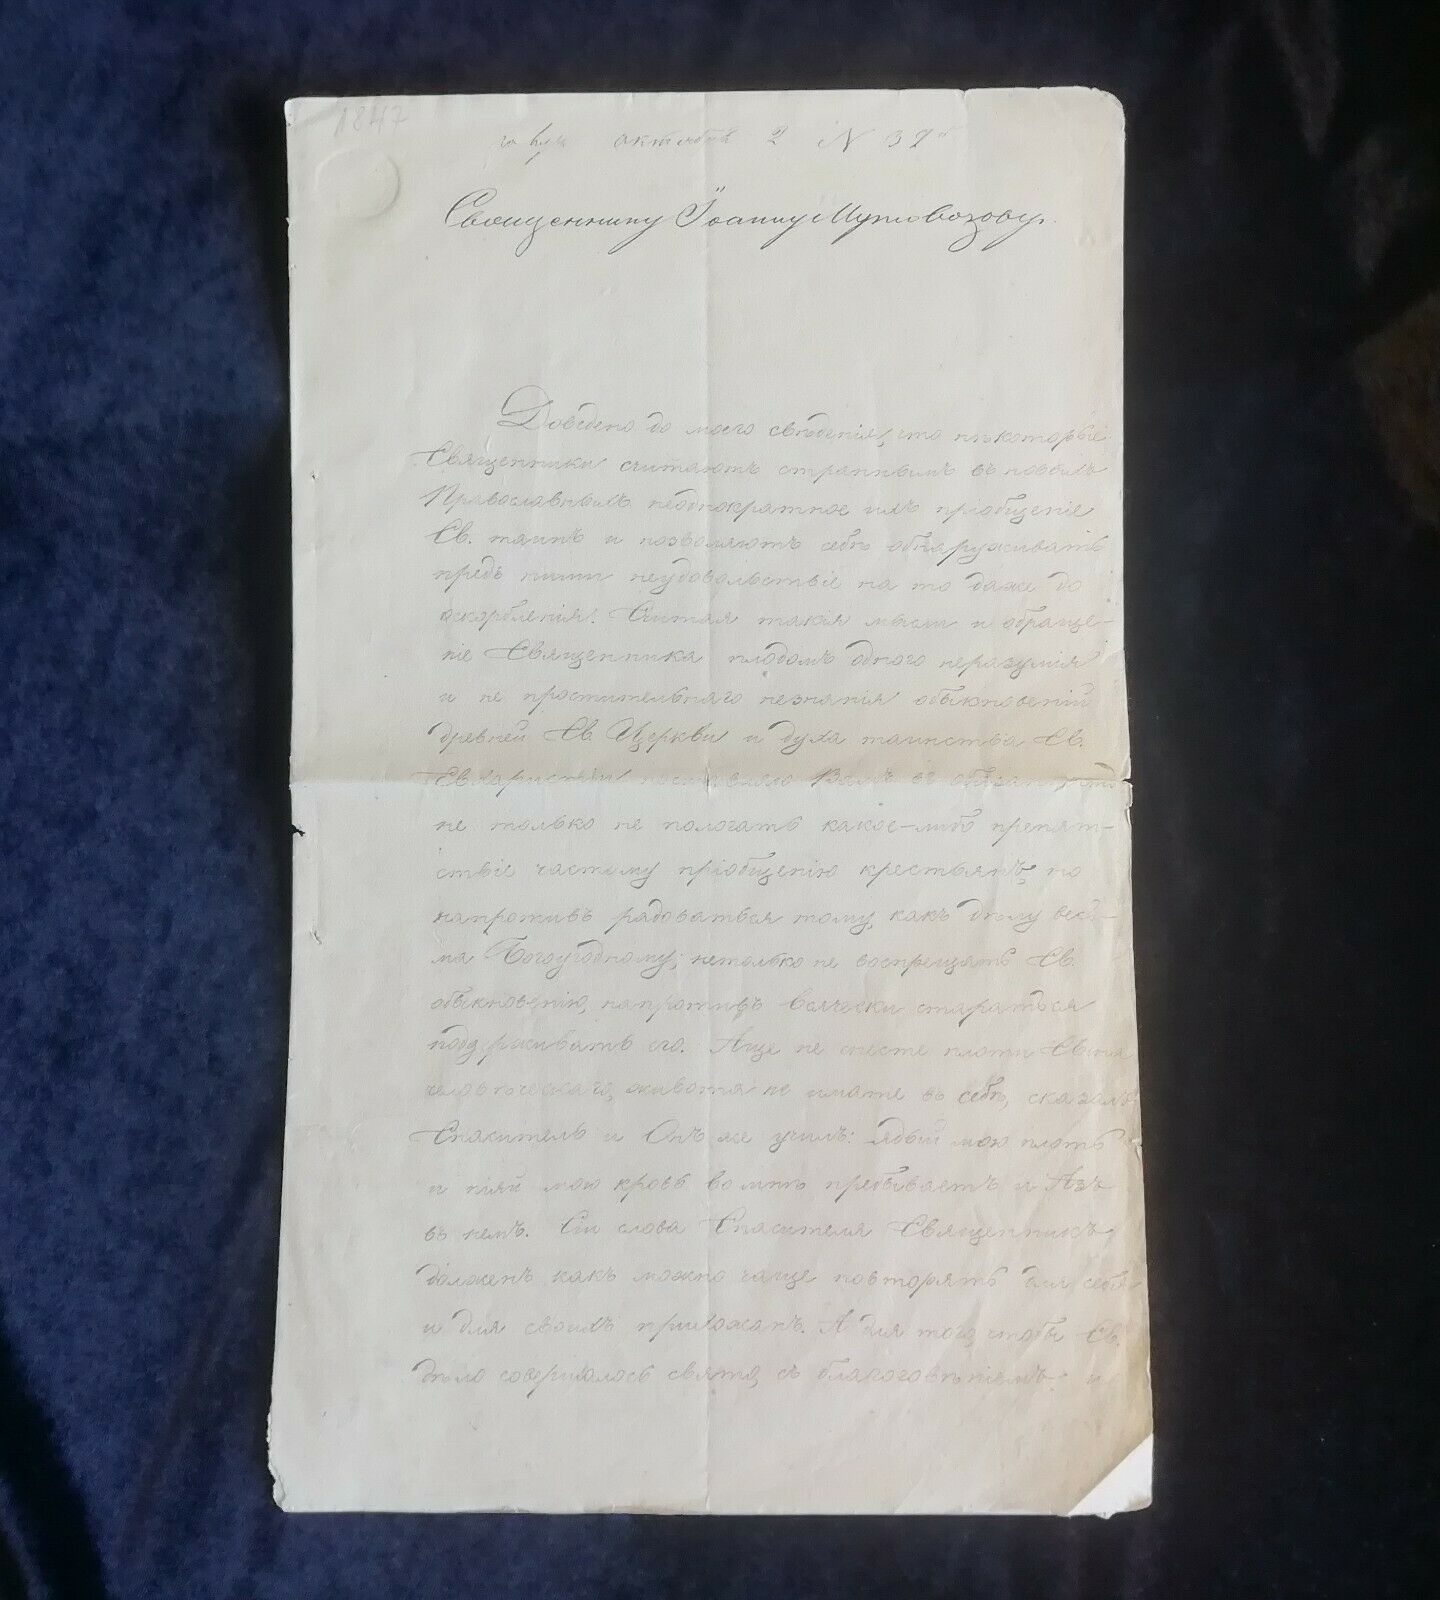 1847
октября 2 N 37
Священнику Іоанну
Доведено до моего свѣденія, что нѣкоторые
Священники считаютъ страннымъ въ новыхъ
Православныхъ неоднократное ихъ пріобщеніе
Св. таинъ и позволяютъ себѣ обнаруживать
предъ ними неудовольствіе на то даже до
оскорбленія. Считая такія мысли и обраще-
ніе Священника плодомъ одного неразумія
и не простительнаго незнанія обыкновеній
древней Св. Церкви и духа таинства Св.
Евхаристіи поставляю Вамъ въ обязанность
не только не пологать какое-либо препят-
ствіе частому пріобщенію крестьянъ, но
напротивъ радоваться тому, какъ дѣлу весь-
ма Богоугодному; нетолько не воспрещять Св.
обыкновенію, напротивъ всячески стараться
поддерживать его. Аще не снесте плоти Сына
человѣческаго, живота не имате въ себѣ, сказалъ
Спаситель и Онъ же училъ: ядый мою плоть
и піяй мою кровь во мнѣ пребываетъ и Азъ
въ немъ. Сіи слова Спасителя Священникъ
долженъ какъ можно чаще повторять для себя
и для своихъ прихожанъ. А для того, чтобы Св.
дѣло совершалось свято, съ благоговѣніемъ и